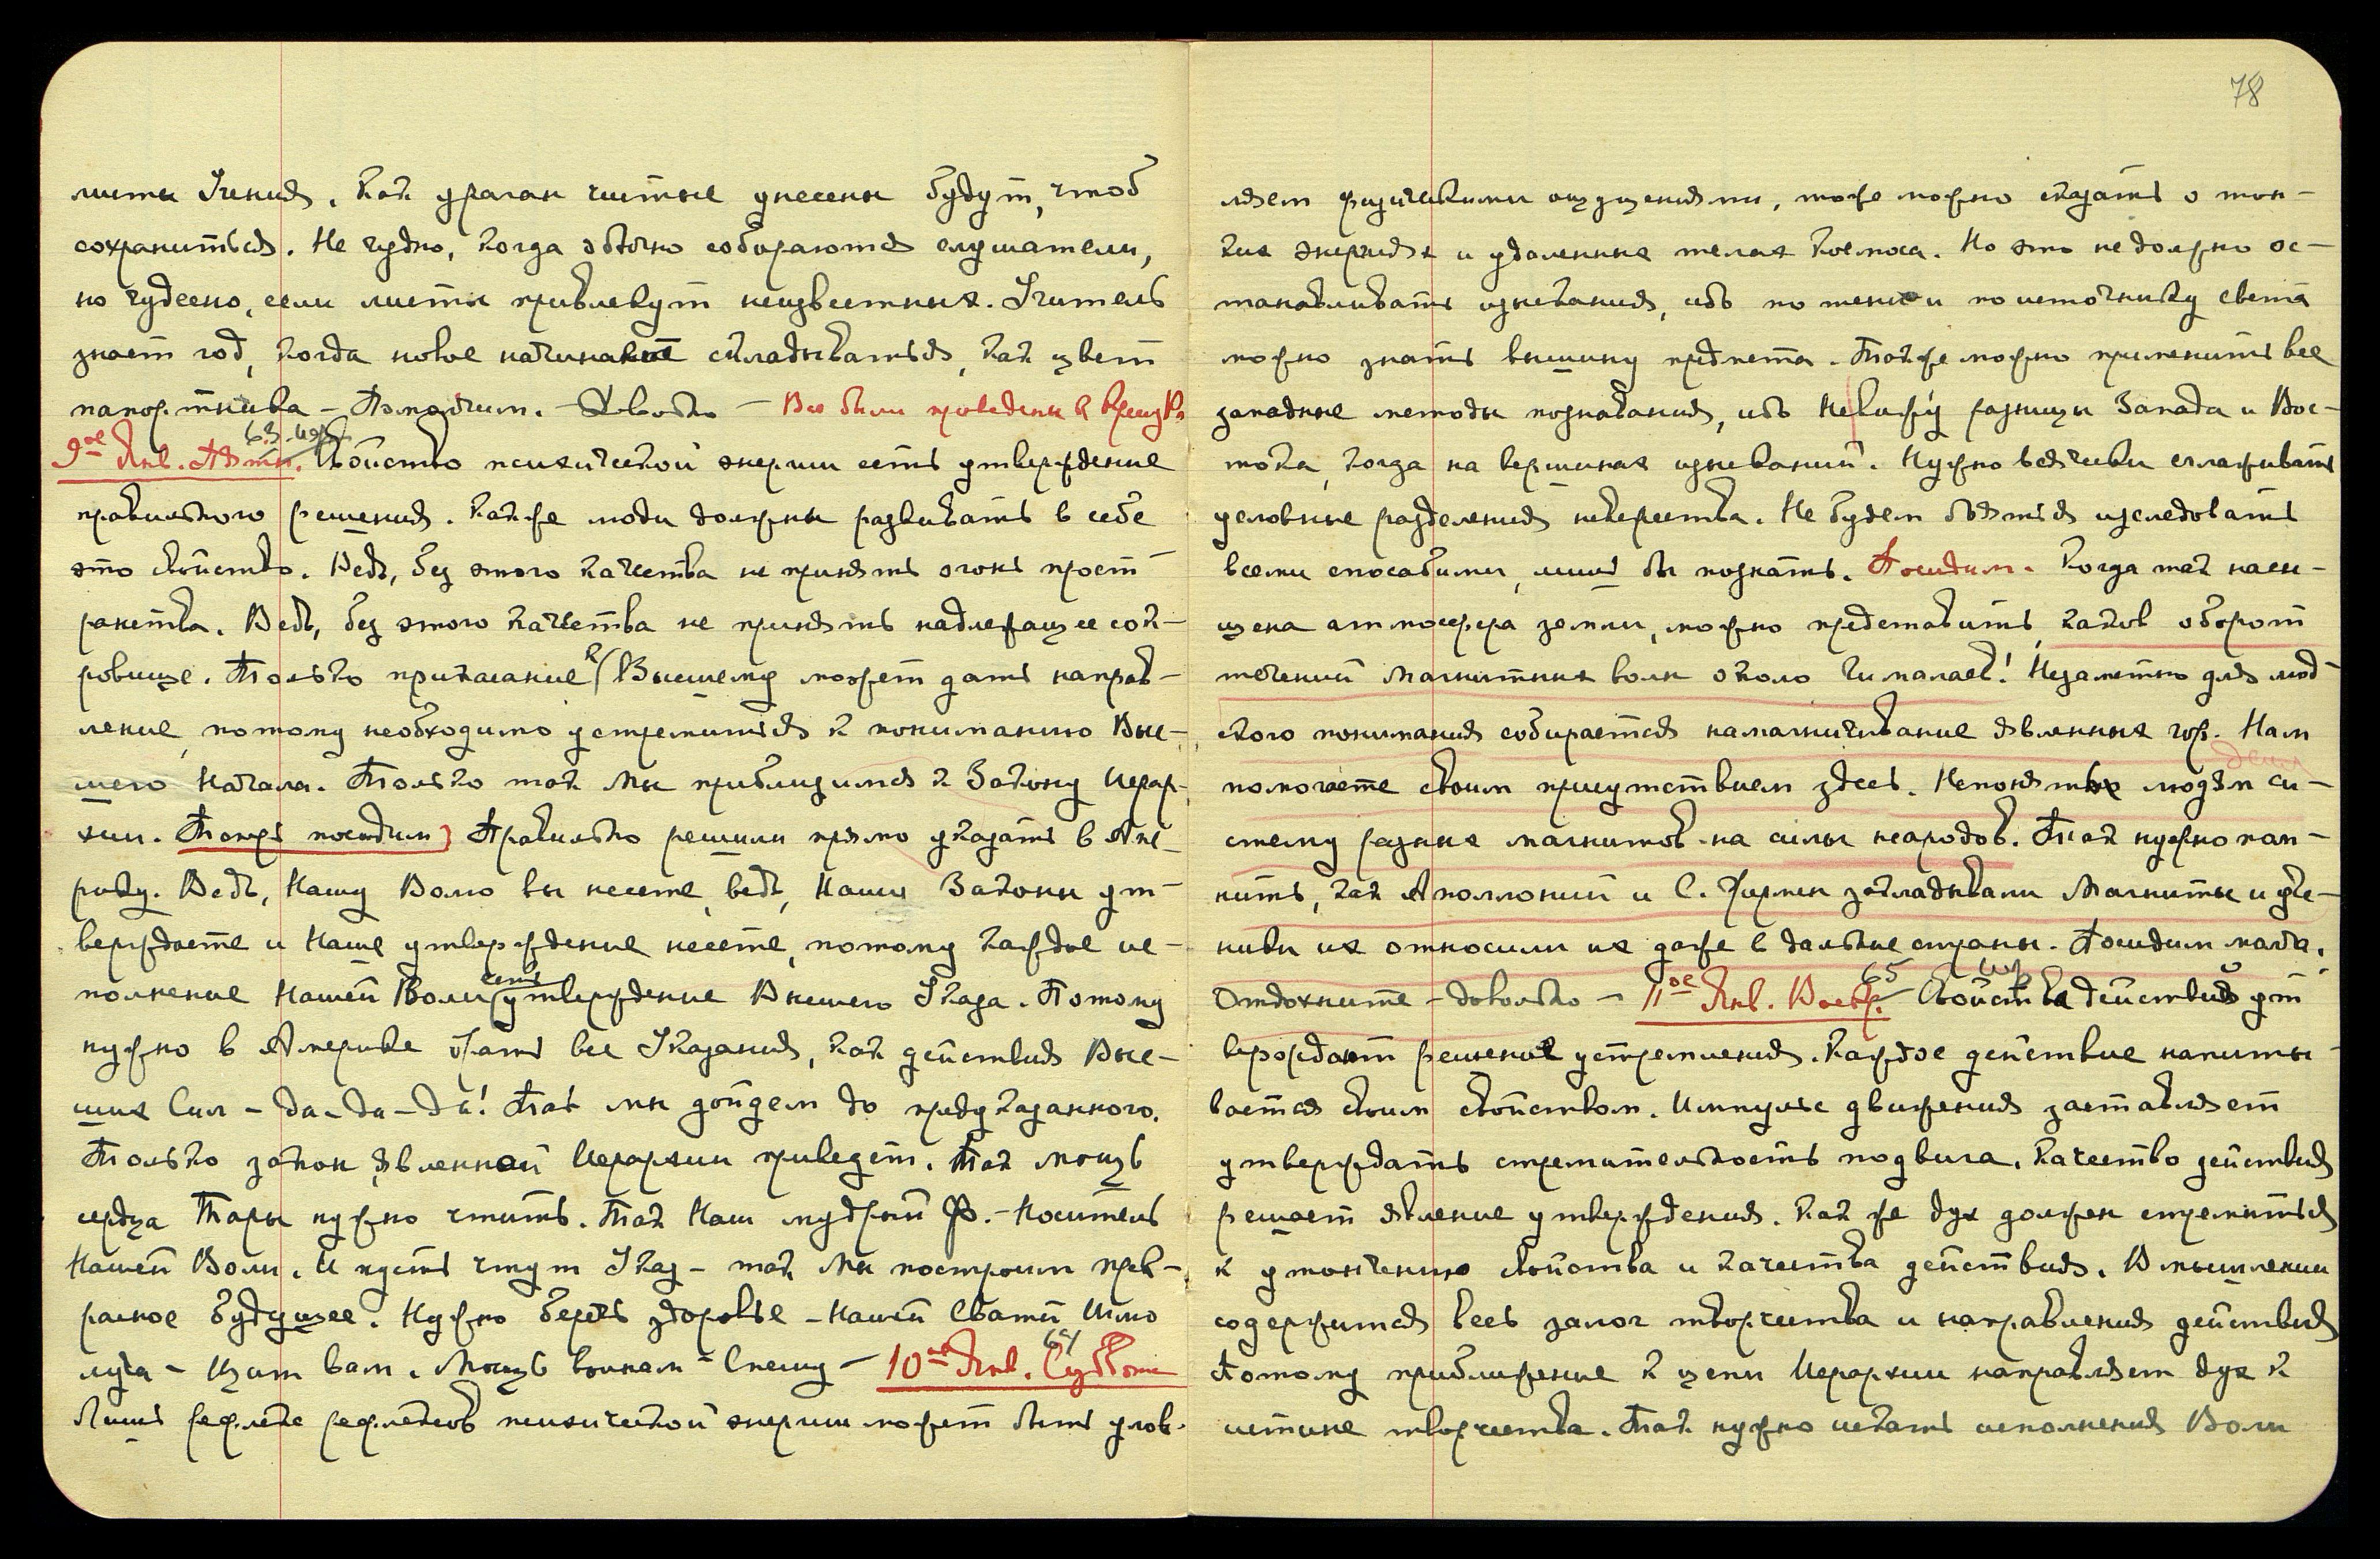 78
листы Учения. Как ураган чистые унесены будут, чтоб
сохраниться. Не чудно, когда обычно собираются слушатели,
но чудесно, если листы привлекут неизвестных. Учитель
знает год, когда новое начинает складываться, как цвет
папортника – Помолчим. – Довольно – Все были приведены к
63. иер.
9ое Янв. Пятн. Свойство психической энергии есть утверждение
правильного решения. Также люди должны развивать в себе
это свойство. Ведь, без этого качества не принять огонь прост-
ранства. Ведь, без этого качества не принять надлежащее сок-
ровище. Только прикасание к Высшему может дать направ-
ление, потому необходимо устремиться к пониманию Выс-
шего Начала. Только так Мы приблизимся к Закону Иерар-
хии. Теперь посидим) Правильно решили прямо указать в Аме-
рику. Ведь, Нашу Волю вы несете, ведь, Наши Законы ут-
верждаете и Наше утверждение несете, потому каждое ис-
полнение Нашей Воли есть утверждение Высшего Указа. Потому
нужно в Америке брать все Указания, как действия Выс-
ших Сил – да – да – да! Так мы дойдем до предуказанного.
Только закон явленной Иерархии приведет. Так мощь
сердца Тары нужно чтить. Так Наш мудрый Ф. – Носитель
Нашей Воли. И пусть чтут Указ – так Мы построим прек-
расное будущее. Нужно беречь здоровье – Нашей Свати Шлю
луча – Щит вам. Мощь воинам – Спешу –
64
10ое Янв. Суббота
Лишь рефлекс рефлексов психической энергии может быть улов-
ляем физическими ощущениями, тоже можно сказать о тон-
ких энергиях и удаленных телах Космоса. Но это не должно ос-
танавливать изыскания, ибо по тени и по источнику света
можно знать вышину предмета. Также можно применить все
западные методы познавания, ибо не вижу разницы Запада и Вос-
тока, когда на вершинах изысканий. Нужно всячески сглаживать
условные разделения невежества. Не будем бояться исследовать
всеми способами, лишь бы познать. Посидим. Когда так насы-
щена атмосфера земли, можно представить, каков оборот
течений магнитных волн около Гималаев! Незаметно для люд-
ского понимания собирается намагничивание явленных гор. Нам
помогаете своим присутствием здесь. Непонятно людям си-
стему разных магнитов на силы народов. Так нужно пом-
нить, как Аполлоний и С. Жермен закладывали Магниты и уче-
ники их относили их даже в дальные страны. Посидим молча.
Отдохните – довольно – 11ое Янв. Воскр. 65 иер. Свойства действий ут-
верждают решение устремления. Каждое действие напиты-
вается своим свойством. Импульс движения заставляет
утверждать стремительность подвига. Качество действия
решает явление утверждения. Как же дух должен стремиться
к утончению свойства и качества действия. В мышлении
содержится весь залог творчества и направления действия
Потому приближение к цепи Иерархии направляет дух к
истине творчества. Так нужно искать исполнения Воли